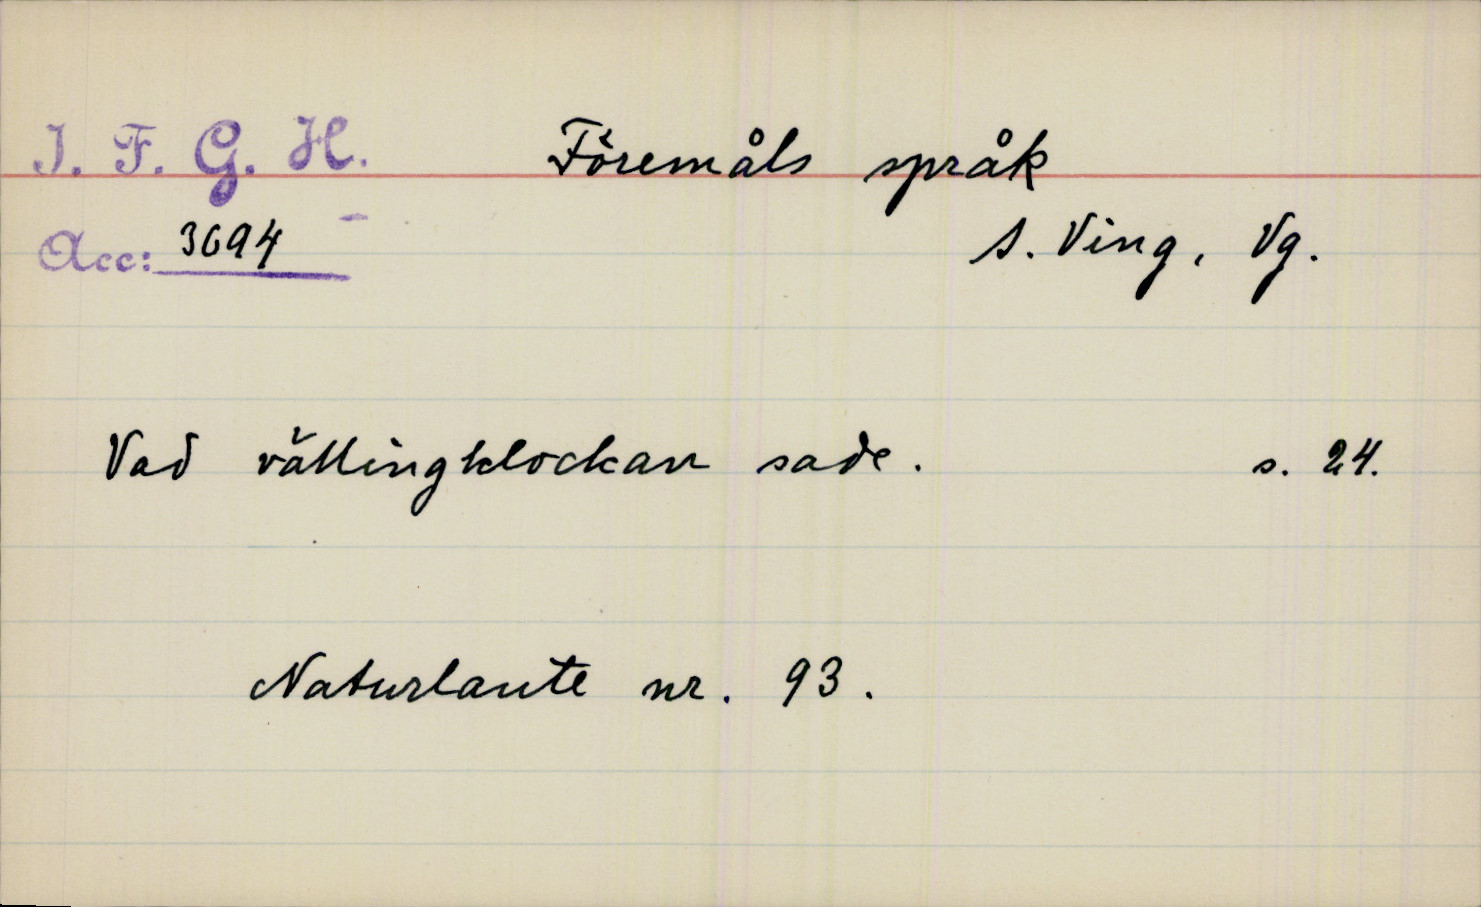 I. F. G. H. Föremåls språk
Acc: 3694 S. Ving, Vg.
Vad vällingklockan sade. s. 24.
Naturlaute nr. 93.